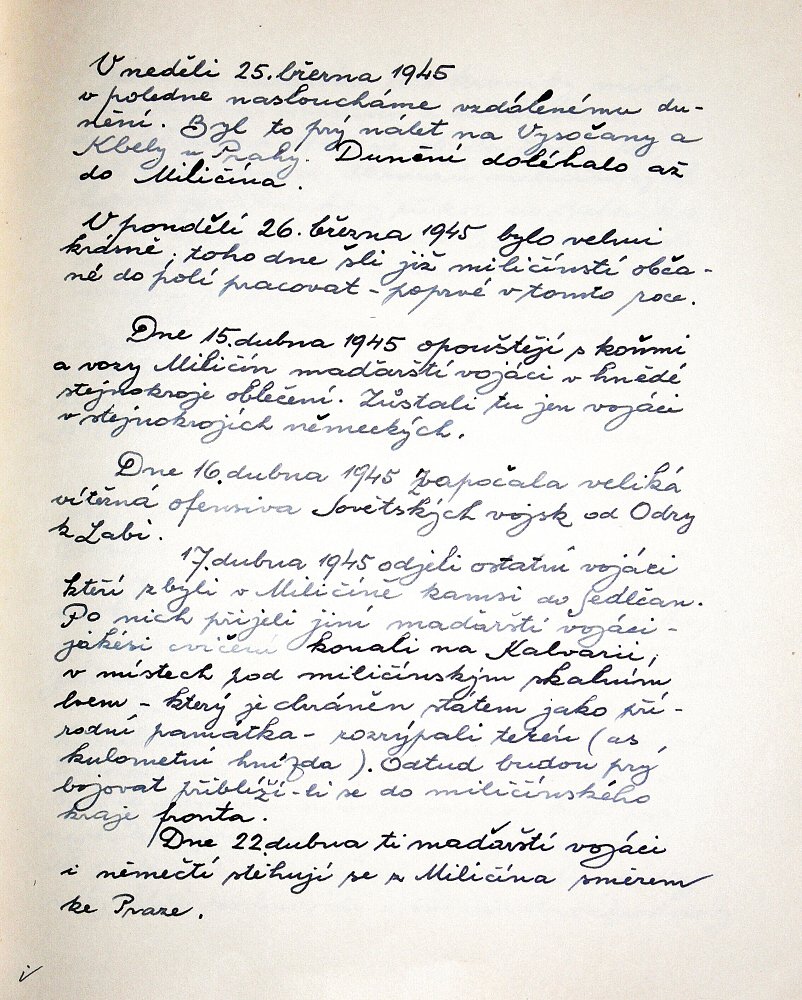 V neděli 25. března 1945
v poledne nasloucháme vzdálenému du-
nění. Byl to prý nálet na Vysočany a
Kbely u Prahy. Dunění doléhalo až
do Miličína.
V pondělí 26. března 1945 bylo velmi
krásně, toho dne šli již miličínstí obča-
né do polí pracovat - poprvé v tomto roce.
Dne 15. dubna 1945 opouštějí s koňmi
a vozy Miličín maďarští vojáci v hnědé
stejnokroje oblečení. Zůstali tu jen vojáci
v stejnokrojích německých.
Dne 16. dubna 1945 započala veliká
vítězná ofensiva Sovětských vojsk od Odry
k Labi.
17. dubna 1945 odjeli ostatní vojáci
kteří zbyli v Miličíně kamsi do Sedlčan.
Po nich přijeli jiní maďarští vojáci -
jakési cvičení konali na Kalvarii,
v místech pod miličínským skalním
lvem - který je chráněn státem jako pří-
rodní památka - rozrýpali terén (as
kulometní hnízda). Odtud budou prý
bojovat přiblíží-li se do miličínského
kraje fronta.
Dne 22. dubna ti maďarští vojáci
i němečtí stěhují se z Miličína směrem
ke Praze.